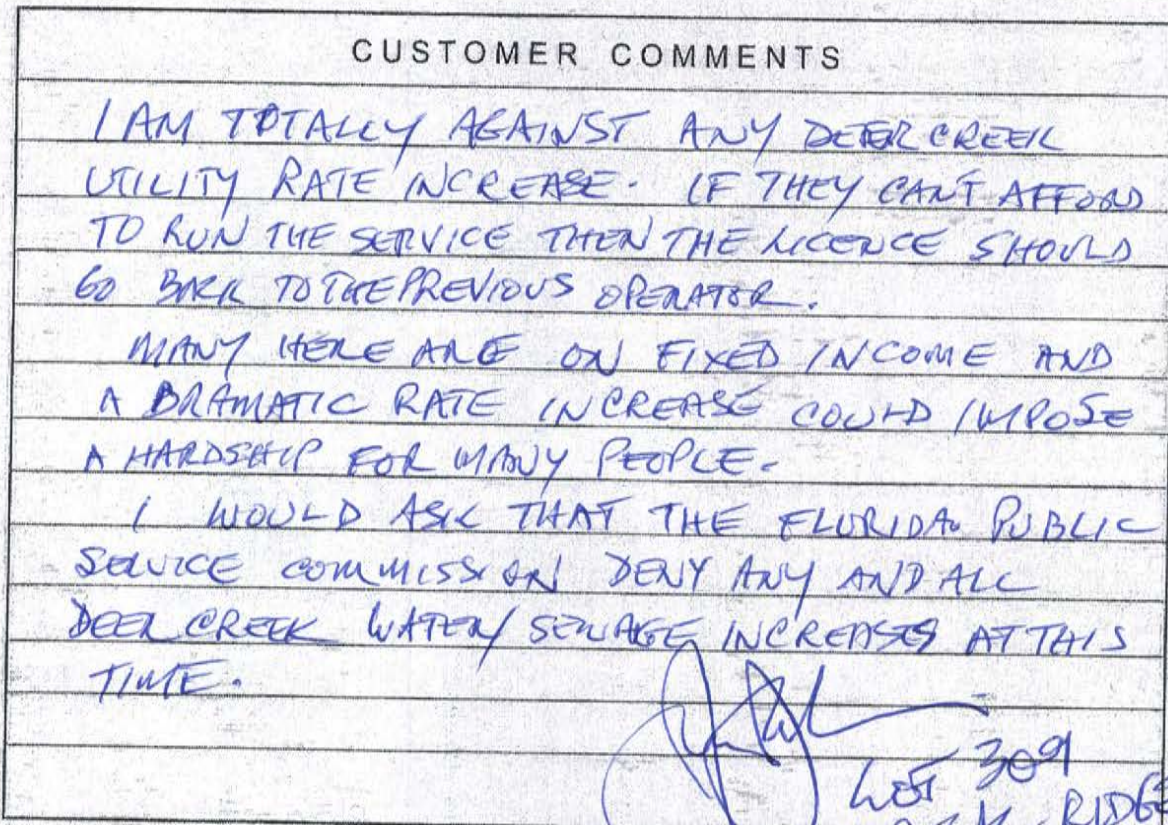 CUSTOMER COMMENTS
I AM TOTALLY AGAINST ANY DEER CREEK
UTILITY RATE INCREASE. IF THEY CAN'T AFFORD
TO RUN THE SERVICE THEN THE LICENCE SHOULD
GO BACK TO THE PREVIOUS OPERATOR.
MANY HERE ARE ON FIXED INCOME AND
A DRAMATIC RATE INCREASE COULD IMPOSE
A HARDSHIP FOR MANY PEOPLE.
I WOULD ASK THAT THE FLORIDA PUBLIC
SERVICE COMMISSION DENY ANY AND ALL
DEER CREEK WATER/SEWAGE INCREASES AT THIS
TIME.
LOT 309
RIDGE